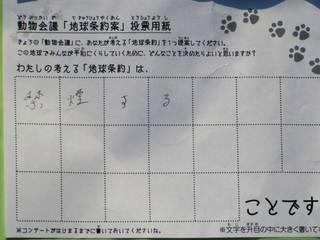 動物会議「地球条約案」投票用紙
きょうの「動物会議」に、あなたが考える「地球条約」を1つ提案してください。
この地球でみんなが平和にくらしていくために、どんなことを決めたらよいと思いますか？
わたしの考える「地球条約」は、
禁煙する
ことです
※コンサートがはじまるまでに書いておいてくださいね。
※文字を升目の中に大きく書いて